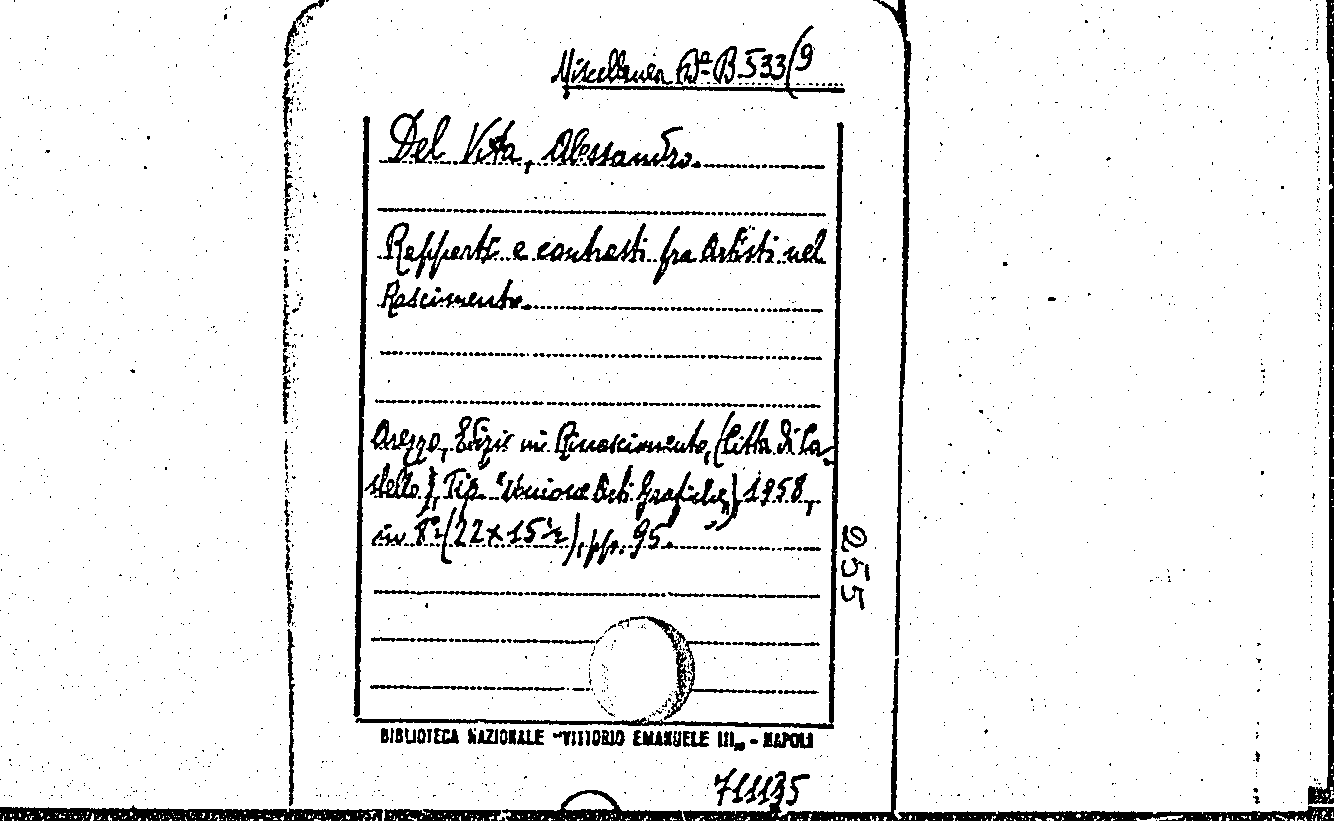 Miscellanea Bª B 533(9
Del Vita, Alessandro.
Rapporti e contrasti fra Artisti nel
Rascimento.
Arezzo, Ediz. Rinascimento, (Città di Ca-
stello), Tip. "Unione Arti Grafiche", 1958,
in 8º (22x15½), pp. 95.
255
BIBLIOTECA NAZIONALE "VITTORIO EMANUELE III„ - NAPOLI
711135